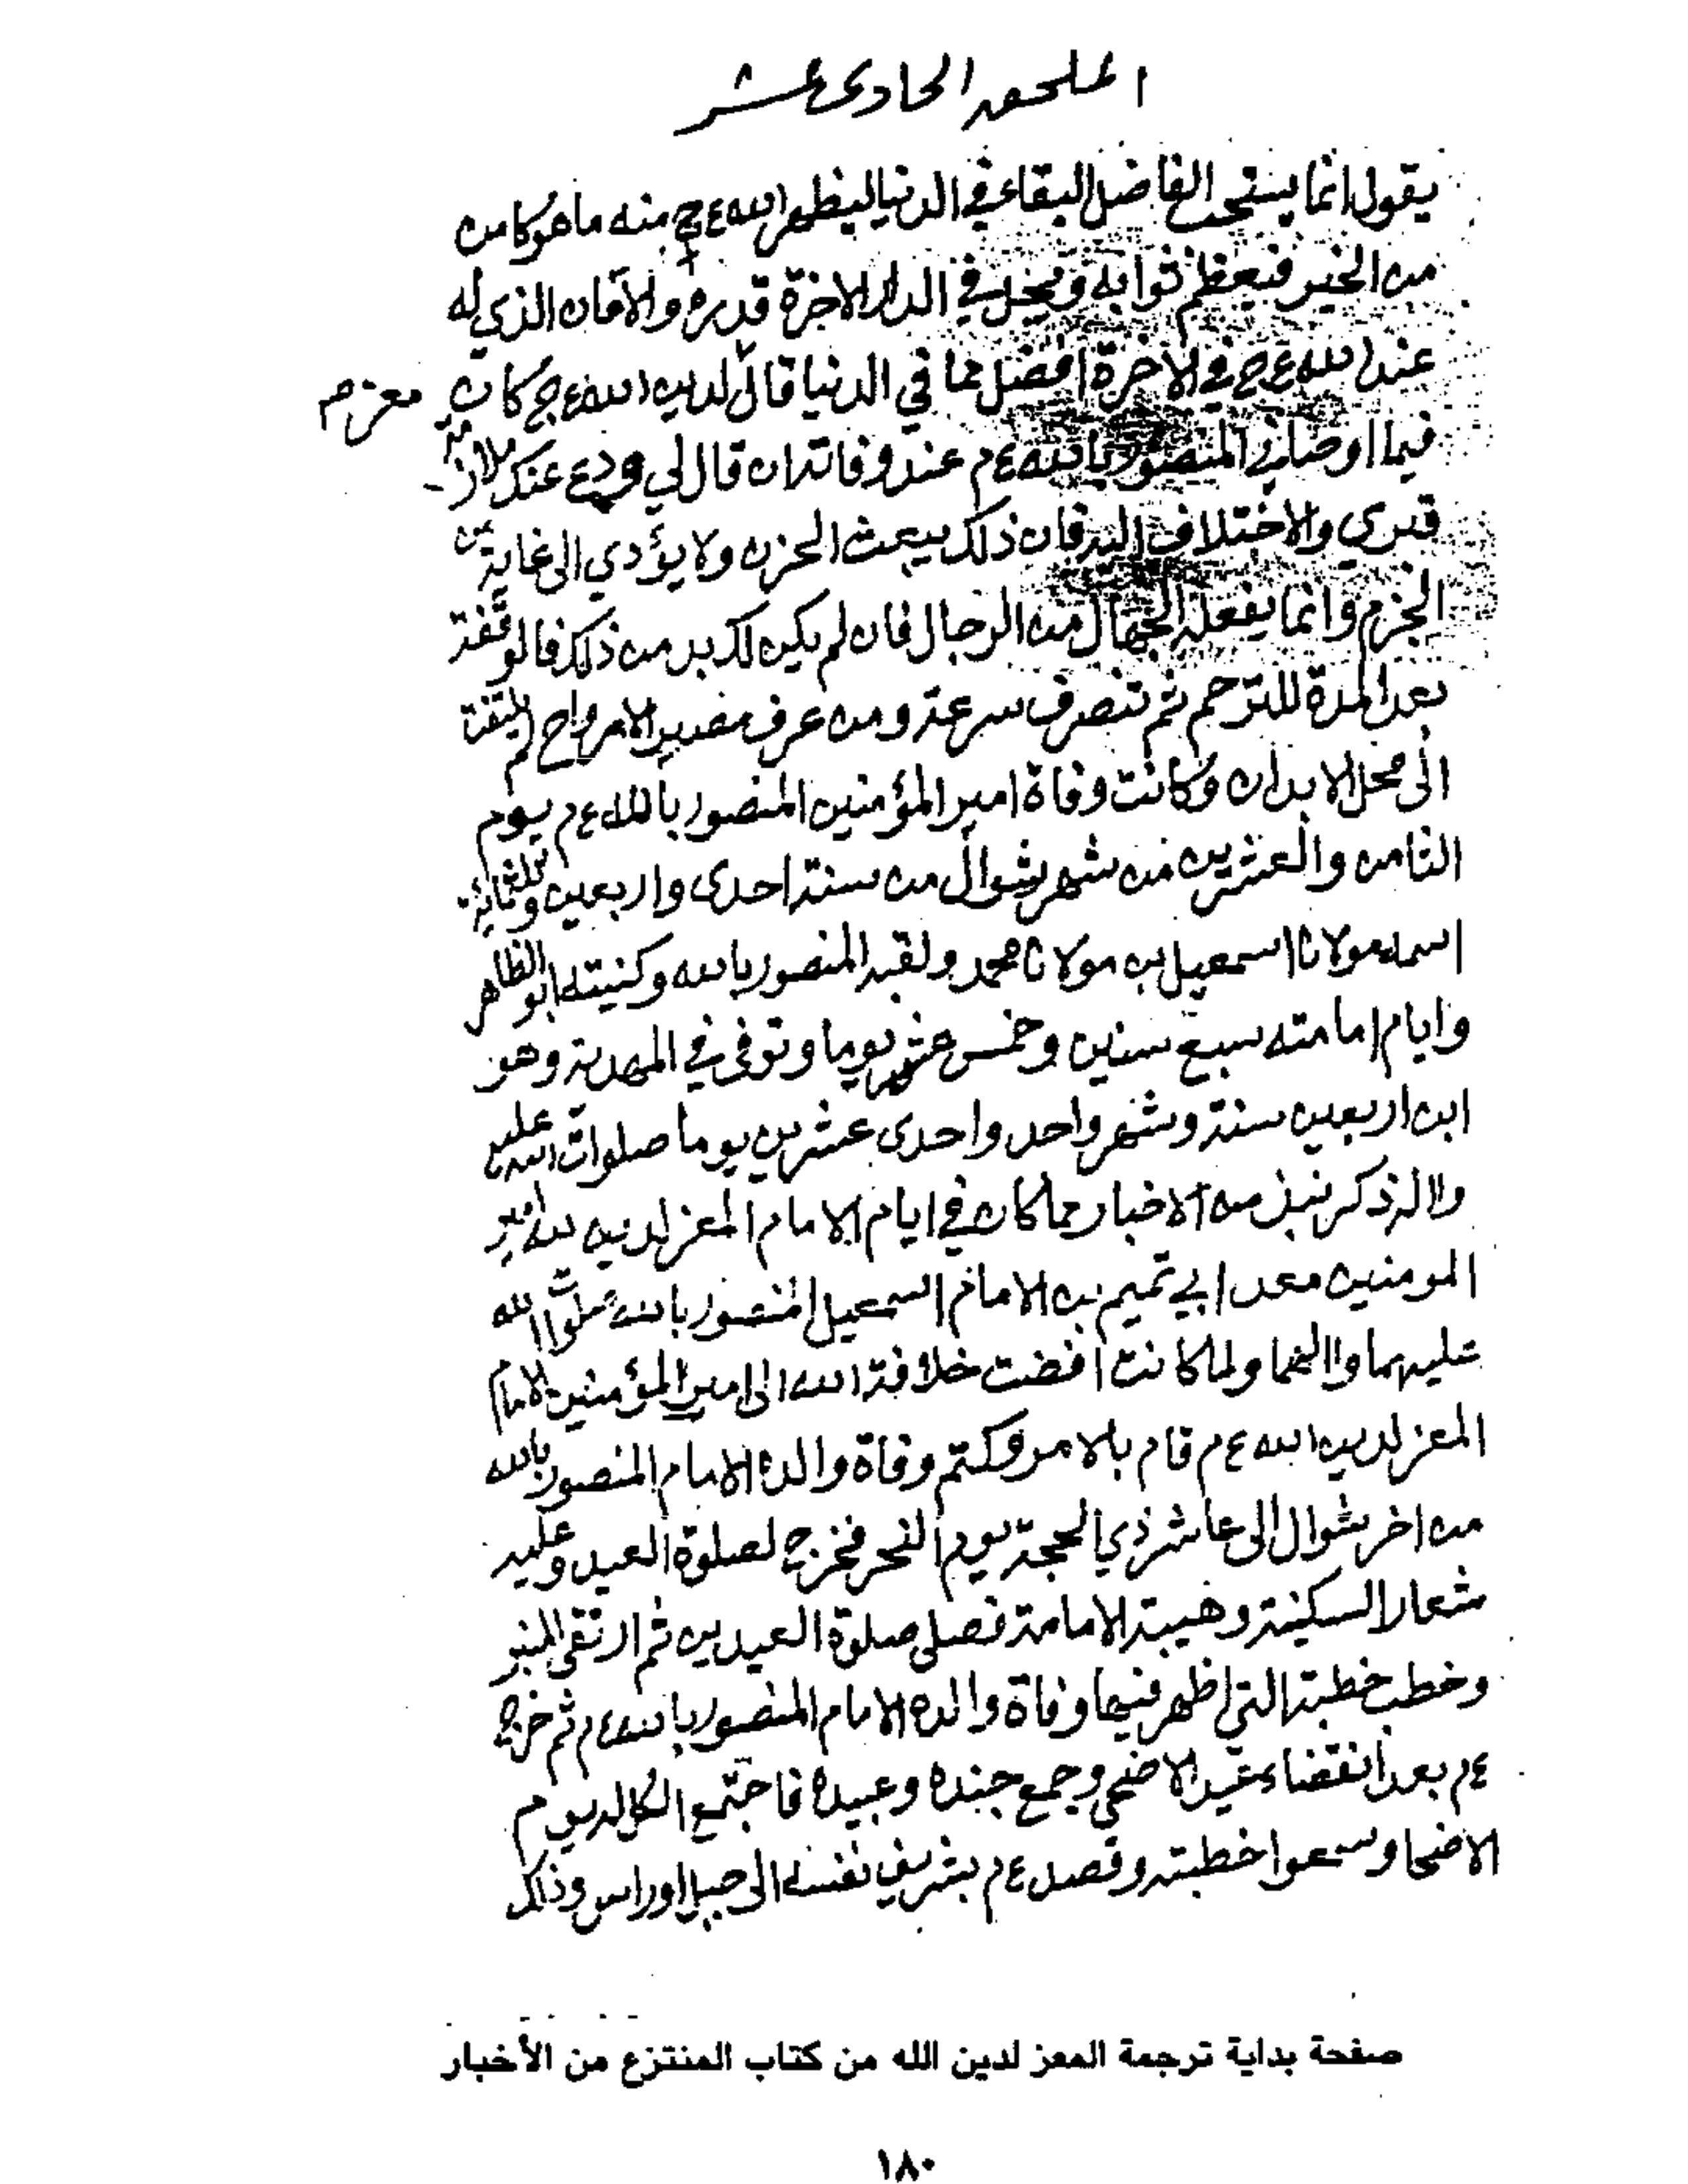 الملحق الحادى عشر
يقول انما يستحب الفاضل البقاء في الدنيا ليظهر الله ع ج منه ما هو كامن
من الخير فيعظم ثوابه و في الدار الاخرة قدره والا فان الذي له
عند الله ع ج في الاخرة افضل مما في الدنيا قال لدين الله ع ج كان معز م
فيما اوصاني المنصور بالله ع م عند وفاته ان قال لي ودع عنك ملازمة
قبري والاختلاف اليه فان ذلك يبعث الحزن ولا يؤدي الى غاية من
الجزم وانما يفعله الجهال من الرجال فان لم يكن لك بد من ذلك فالوقفة
بعد المدة للترحم ثم تنصرف سرعة ومن عرف مصير الامرواح لم يلتفت
الى محل الابدان وكانت وفاة امير المؤمنين المنصور بالله ع م يوم
الثامن والعشرين من شهر شوال من سنة احدى واربعين وثلثمائة
اسمه مولانا اسمعيل بن مولانا محمد ولقبه المنصور بالله وكنيته ابو الظاهر
وايام امامته سبع سنين وخمس عشر يوما وتوفى في المهدية وهو
ابن اربعين سنة وشهر واحد واحدى عشرين يوما صلوات الله عليه
والا لذكر نبذ من الاخبار مما كان في ايام الامام المعز لدين الله امير
المومنين معد ابي تميم بن الامام اسمعيل المنصور بالله صلوات الله
عليهما و الهما ولما كانت افضت خلافة الله الى امير المؤمنين الامام
المعز لدين الله ع م قام بالامر وكتم وفاة والده الامام المنصور بالله
من اخر شوال الى عاشر ذي الحجة يوم النحر فخرج لصلوة العيد وعليه
شعار السكينة وهيبة الامامة فصلى صلوة العيدين ثم ارتقى المنبر
وخطب خطبته التي اظهر فيها وفاة والده الامام المنصور بالله ع م ثم خرج
ع م بعد انقضاء عيد الاضحى وجمع جنده وعبيده فاجتمع الكل لديه يوم
الاضحا وسمعوا خطبته وقصد ع م بشريف نفسه الى جبل اوراس وذلك
صفحة بداية ترجمة المعز لدين الله من كتاب المنتزع من الأخبار
١٨٠